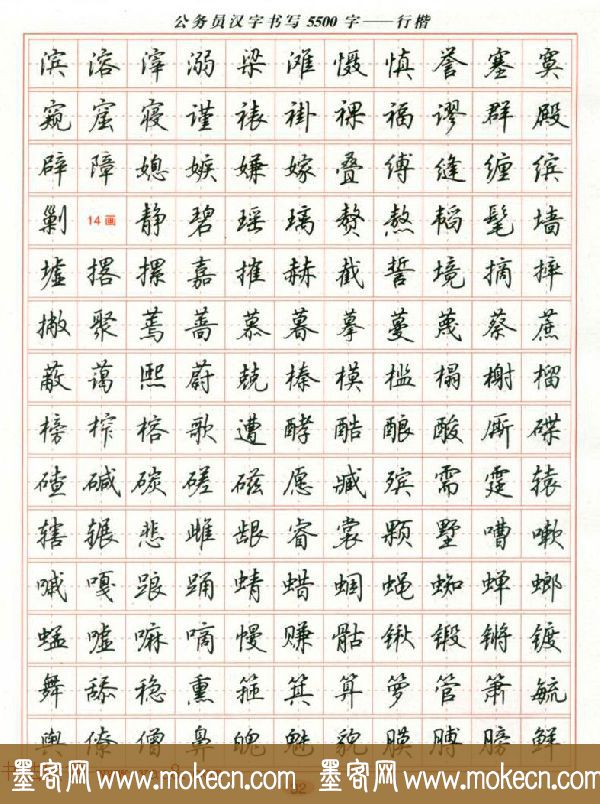 公务员汉字书写 5500 字——行楷
滨溶滓溺梁滩慑慎誉塞寞
窥窟寝谨裱褂裸福谬群殿
辟障媳嫉嫌嫁叠缚缝缠缤
剿 14画 静碧瑶璃赘熬韬髦墙
墟撂摞嘉摧赫截誓境摘摔
撇聚蔫蔷慕暮摹蔓蔑蔡蔗
蔽蔼熙蔚兢榛模槛榻榭榴
榜榨榕歌遭酵酷酿酸厮碟
碴碱碳磋磁愿臧殡需霆辕
辖辗悲雌龈睿裳颗墅嘈嗽
嘁嘎踉踊蜻蜡蝈蝇蜘蝉螂
蜢嘘嘛嘀幔赚骷锹锻锵镀
舞舔稳熏箍箕算箩管箫毓
舆僚僧鼻魄魅貌膜膊膀鲜
墨客网 www.mokecn.com 墨客网 www.mokecn.com